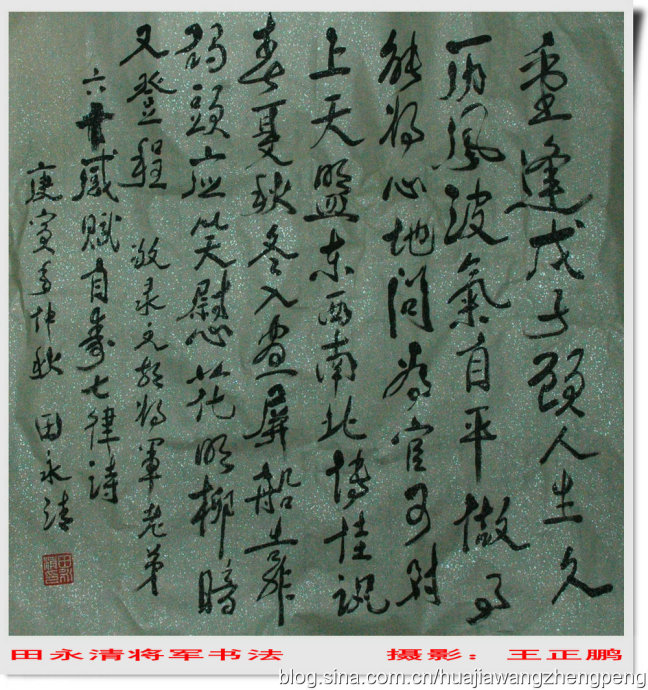 重逢戊子顾人生久
历風波氣自平做事
能将心地问为官可对
上天盟东西南北博佳
春夏秋冬入画屏船靠
码頭应笑慰花明柳暗
又登程 敬录元将军老弟
六十感赋自寿七律诗
庚寅年仲秋 田永清
田永清将军书法 摄影：王正鹏
blog.sina.com.cn/huajiawangzhengpeng